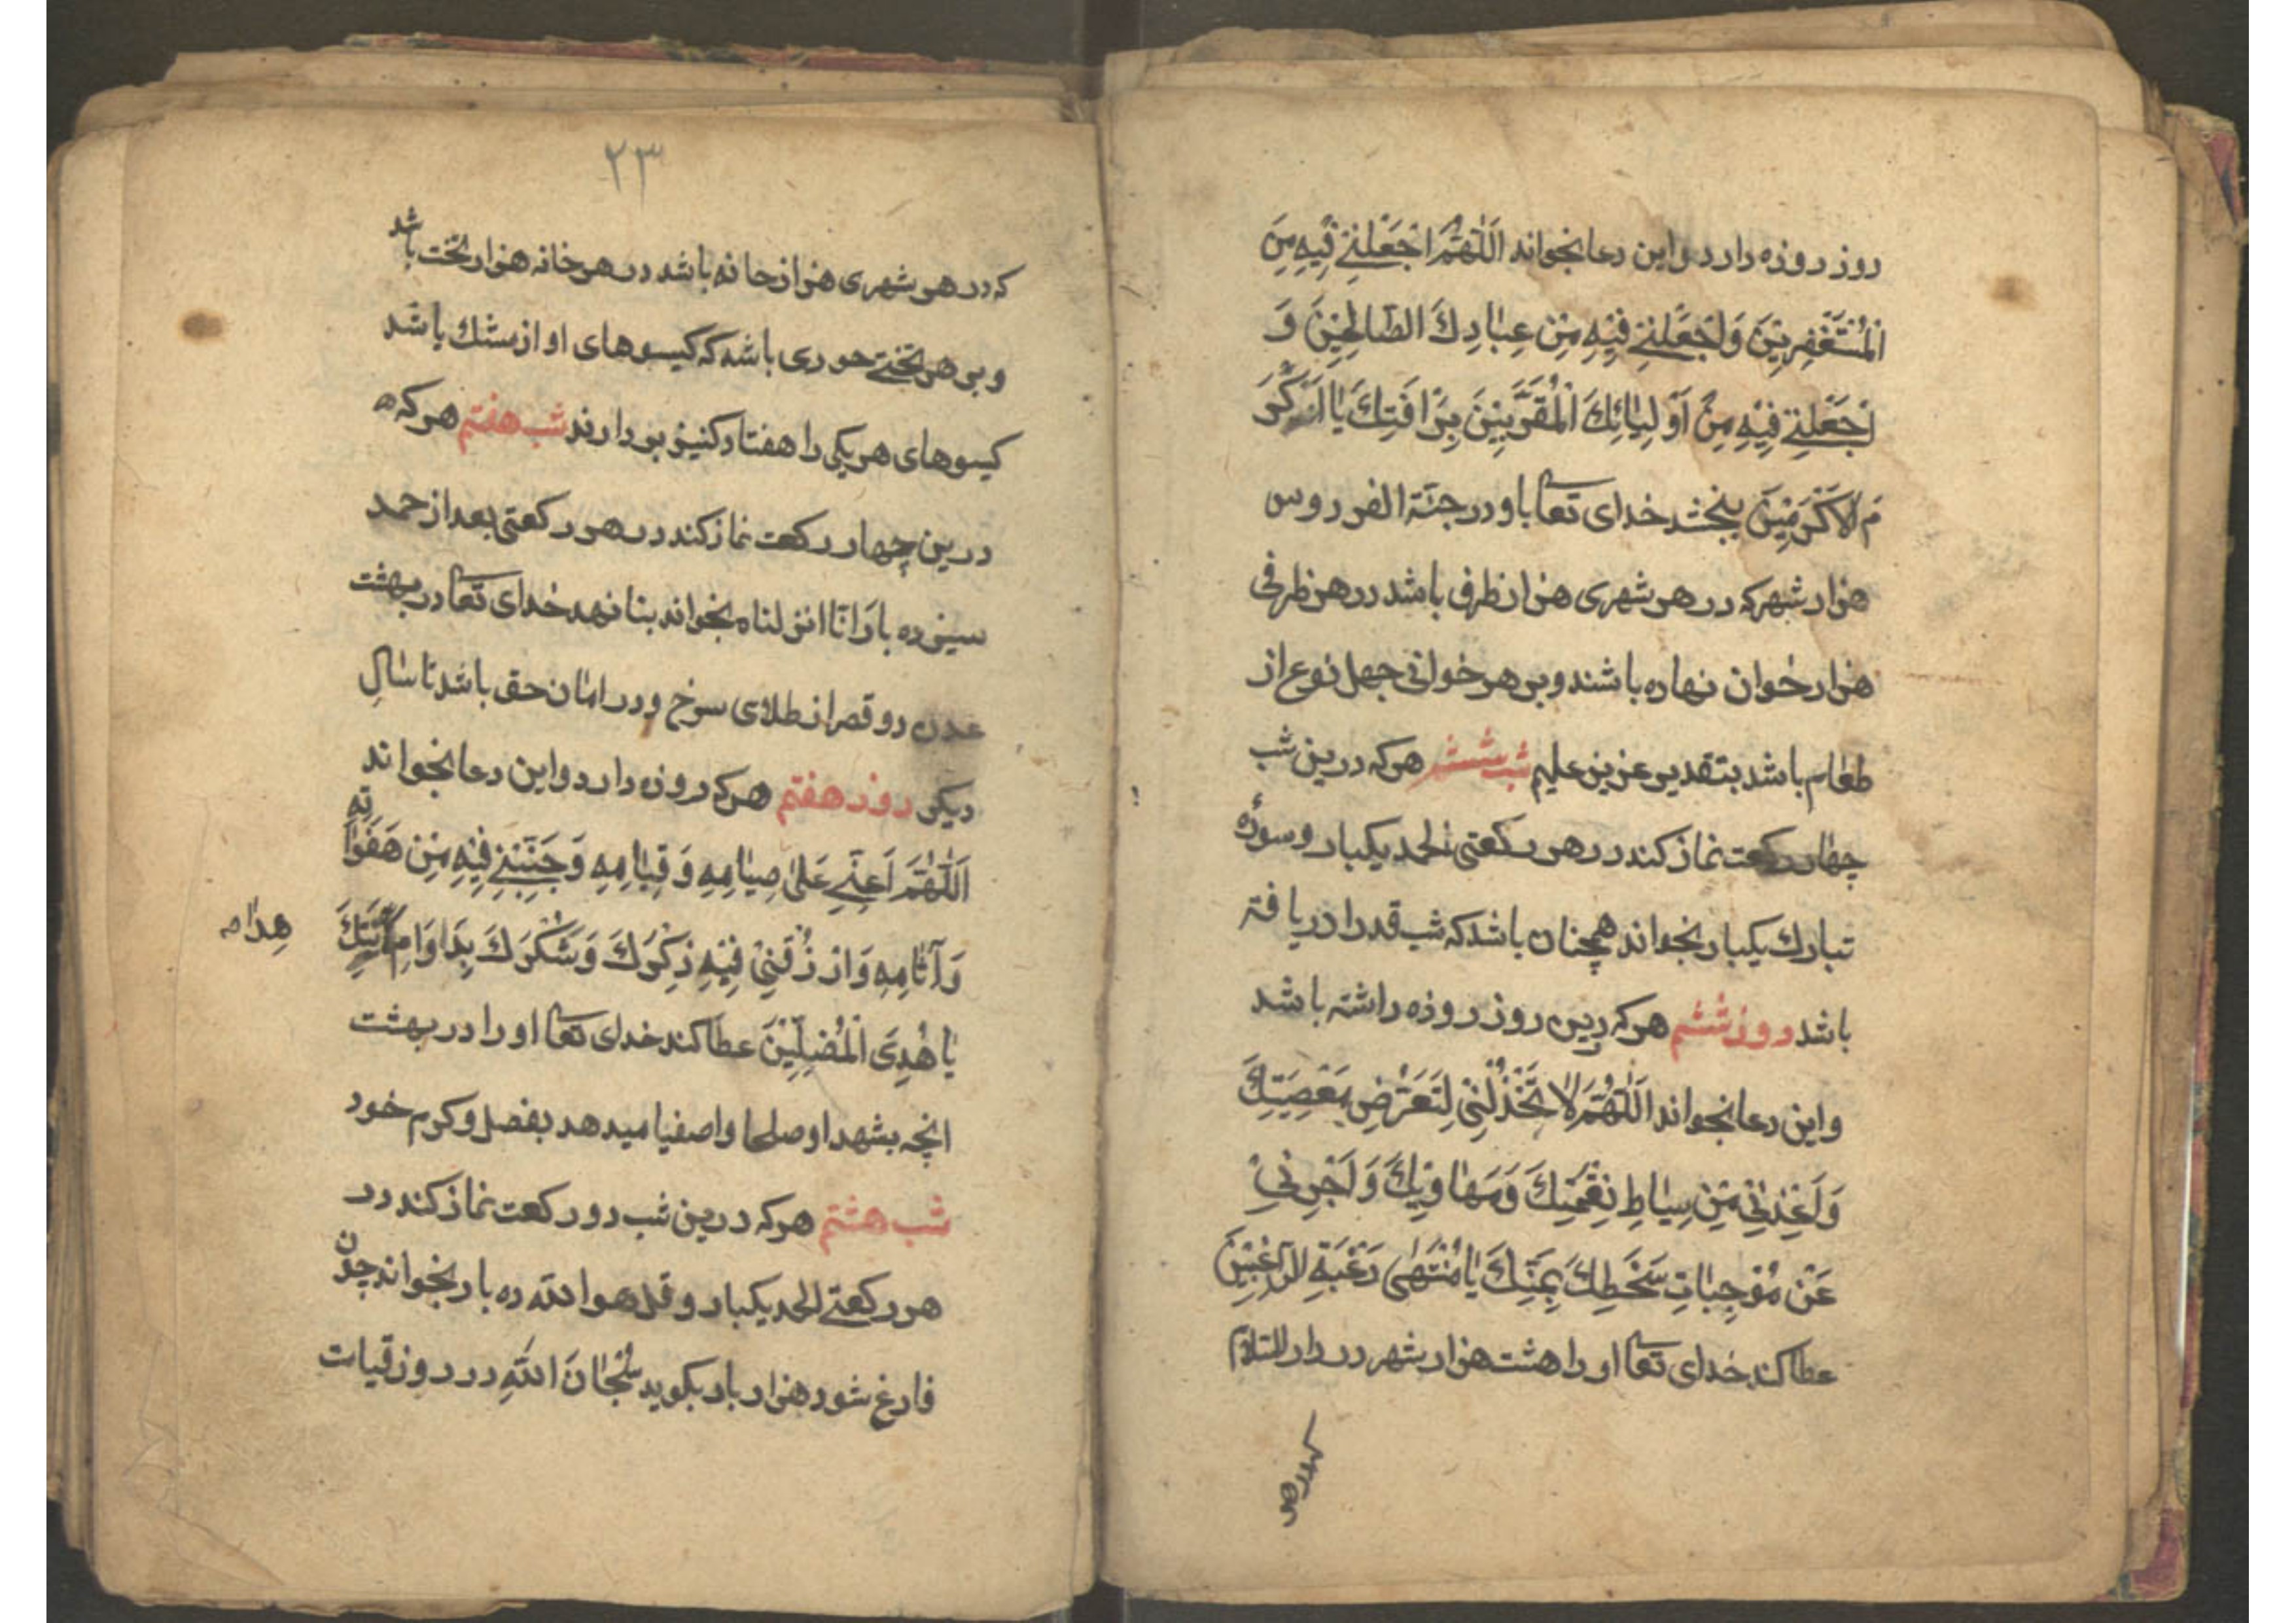 روز روزه دارد واین دعا بخواند اَللّٰهُمَّ اجْعَلْنِے فِیْهِ مِنَ
الْمُسْتَغْفِرِیْنَ وَاجْعَلْنِے فِیْهِ مِنْ عِبٰادِكَ الصّٰالِحِیْنَ وَ
اجْعَلْنِے فِیْهِ مِنْ اَوْلِیٰائِكَ الْمُقَرَّبِیْنَ بِرَافَتِكَ یٰا اَكْرَ
مَ الاَكْرَمِیْنَ ببخشد خدای تعا باو در جنّة الفردوس
هزار شهر که در هر شهری هزار ظرف باشد در هر ظرفی
هزار خوان نهاده باشند و بر هر خوانی چهل نوع از
طعام باشد بتقدیر عزیز علیم شب ششم هرکه درین شب
چهار رکعت نماز کند در هر رکعتی الحمد یکبار و سورهٔ
تبارك یکبار بخواند همچنان باشد که شب قدر را دریافته
باشد روز ششم هرکه درین روز روزه داشته باشد
واین دعا بخواند اَللّٰهُمَّ لاٰ تَخْذُلْنِیْ لِتَعَرُّضِ مَعْصِیَتِكَ
مِنْ سِیٰاطِ نِقْمَتِكَ وَمَهٰاوِیْكَ وَاَجِرْنِیْ
عَنْ مُوْجِبٰاتِ سَخَطِكَ بِمَنِّكَ یٰا مُنْتَهٰی رَغْبَةِ الرّٰاغِبِیْنَ
عطا کند خدای تعا او را هشت هزار شهر در دار السّلام
که در هر
۲۳
که در هر شهری هزار خانه باشد در هر خانه هزار تخت باشد
و بر هر تختے حوری باشد که کیسوهای او از مشك باشد
کیسوهای هر یکی را هفتاد کنیز بردارند شب هفتم هرکه
درین چهار رکعت نماز کند در هر رکعتی بعد از حمد
سیزده بار انّا انزلناه بخواند بنا نهد خدای تعا در بهشت
عدن دو قصر از طلای سرخ و در امان حق باشد تا سٰالِ
دیکر روز هفتم هرکه روزه دارد واین دعا بخواند
اَللّٰهُمَّ اَعِنِّے عَلیٰ صِیٰامِهِ وَقِیٰامِهِ وَجَنِّبْنِے فِیْهِ مِنْ هَفَوٰاتِهِ
وَآثٰامِهِ وَارْزُقْنِیْ فِیْهِ ذِكْرَكَ وَشُكْرَكَ بِدَوَامِ
هِدٰا
یٰا هٰدِیَ الْمُضِلِّیْنَ عطا کند خدای تعا او را در بهشت
انچه بشهدا و صلحا و اصفیا میدهد بفضل و کرم خود
شب هشتم هرکه درین شب دو رکعت نماز کند در
هر رکعتے الحمد یکبار و قل هو الله ده بار بخواند چون
فارغ شود هزار بار بکوید سُبْحٰانَ اللهِ در روز قیامت